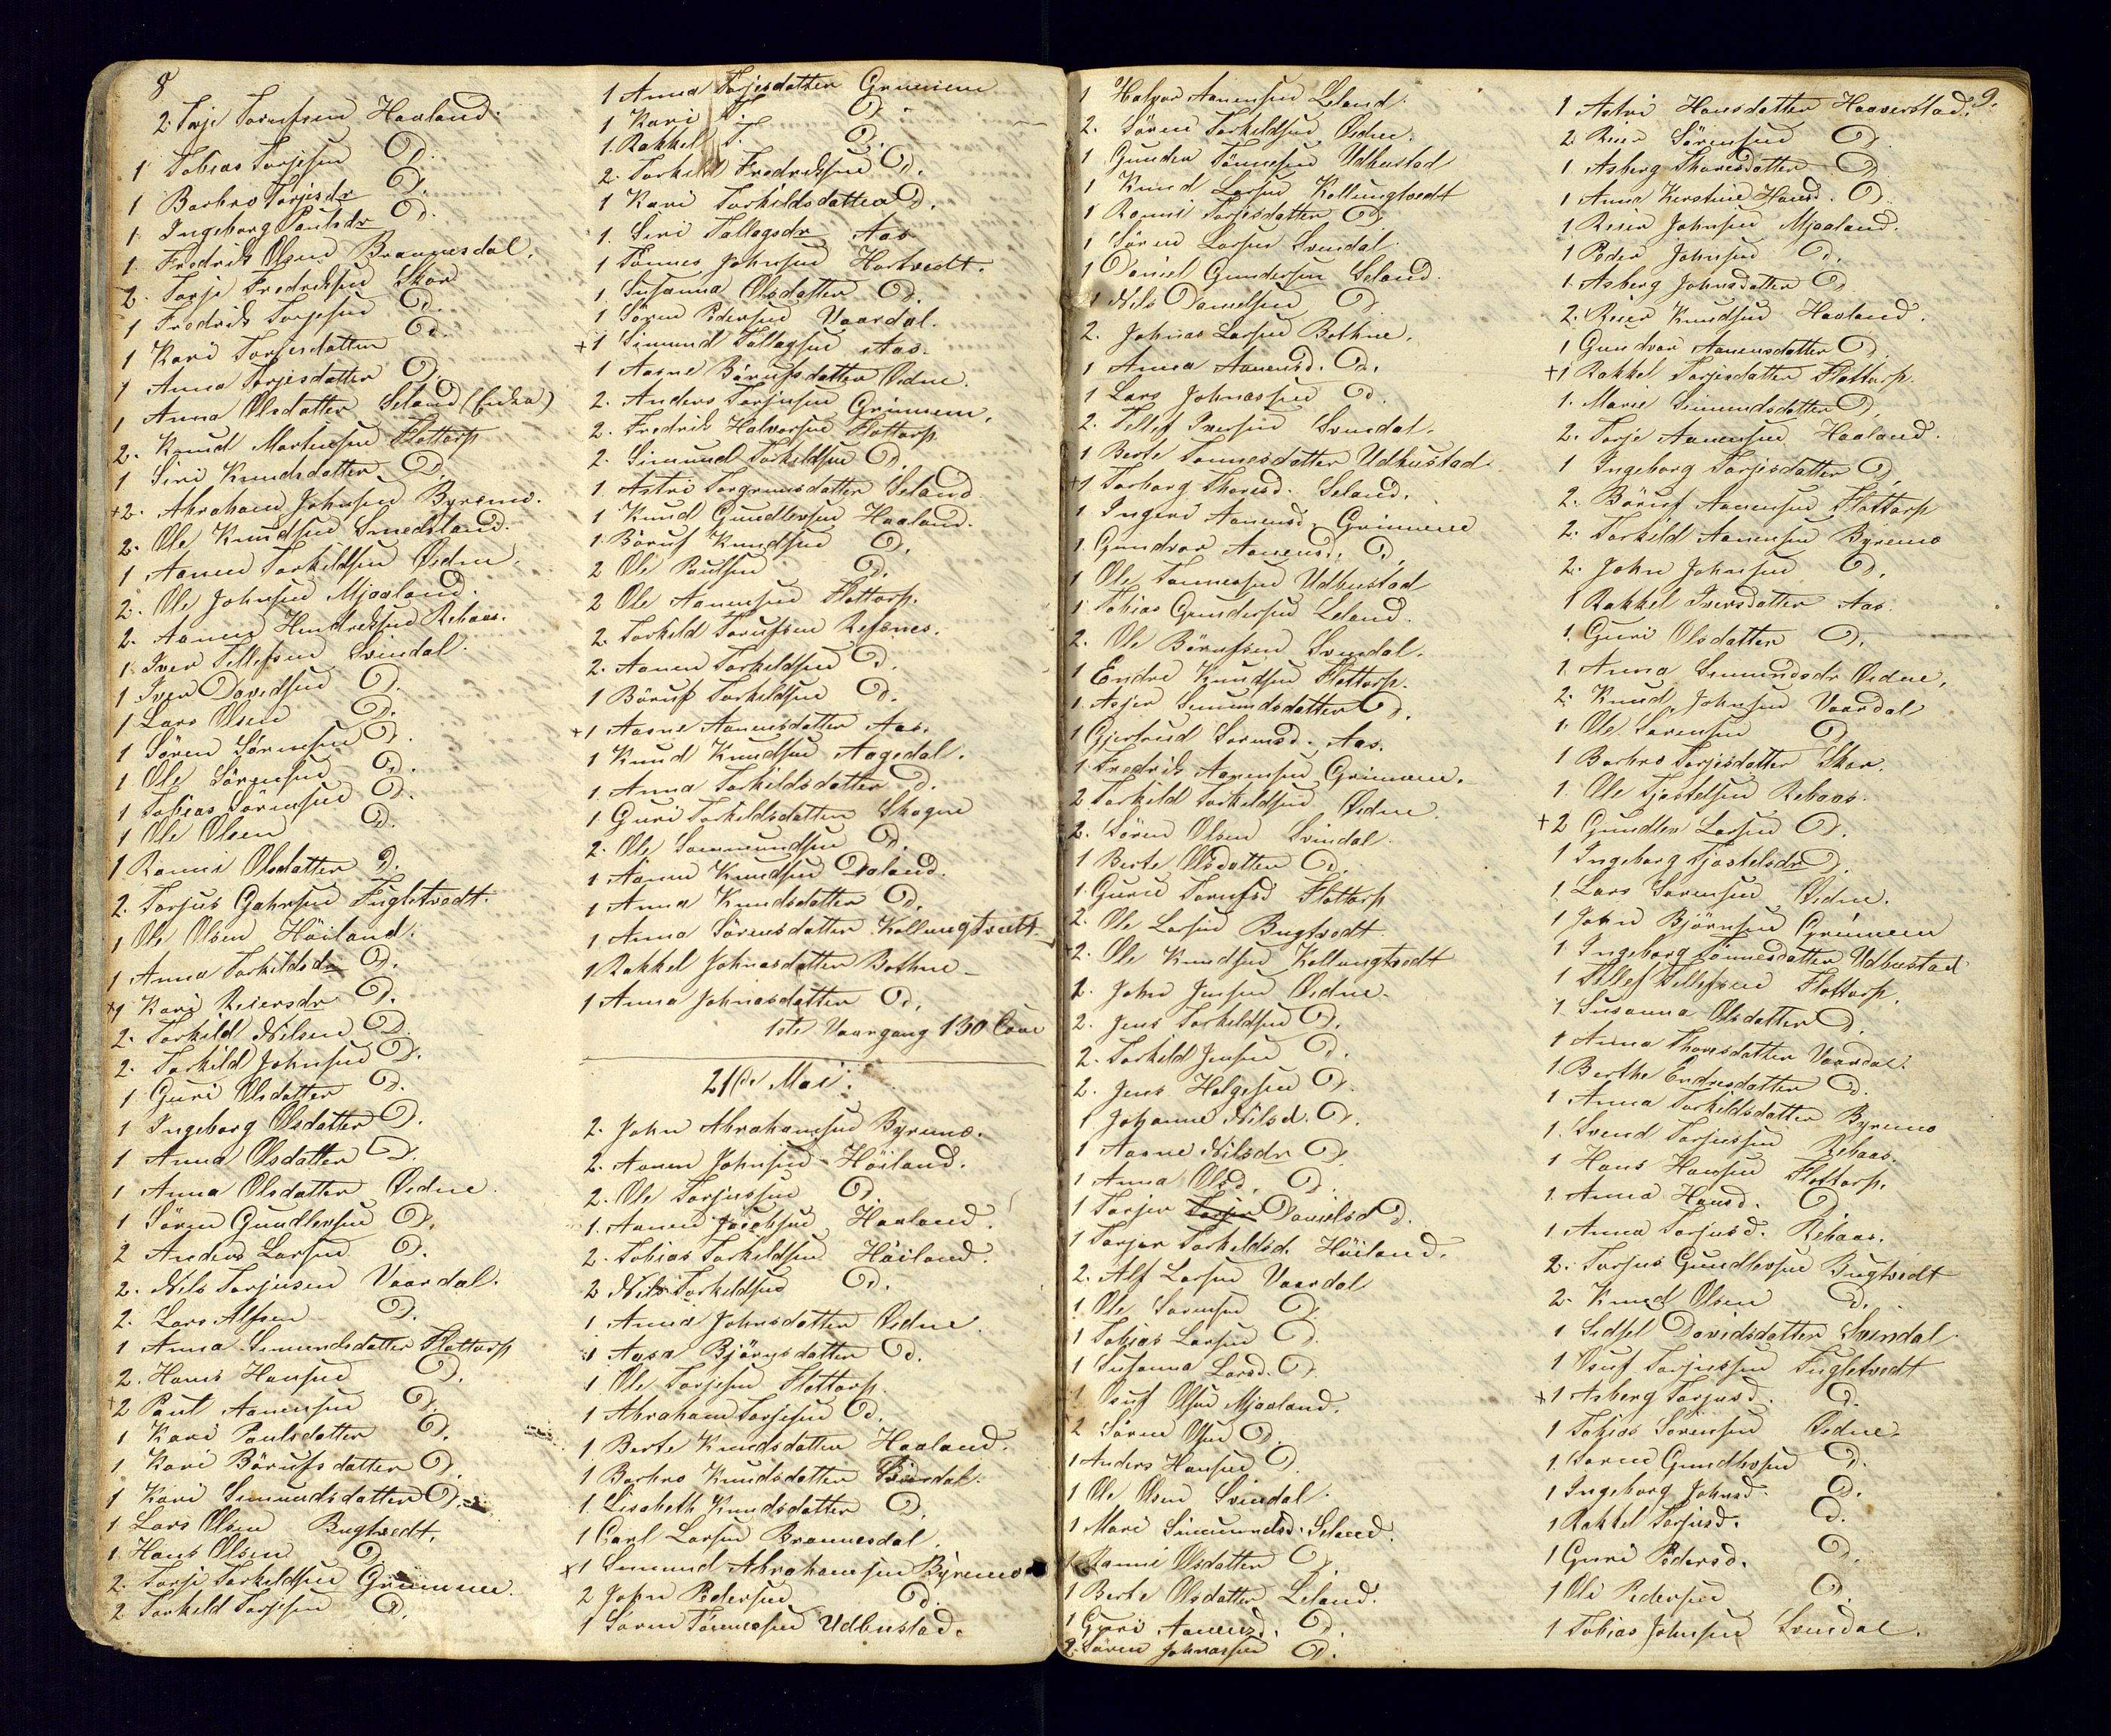 8
2. Terje Torufsen Haaland.
1 Tobias Terjesen D.
1 Barbro Terjesdr D.
1. Ingeborg Paulsdr D.
1. Fredrik Olsen Brannesdal.
2. Terje Fredriksen Skar
1 Fredrik Terjesen D.
1 Kari Terjesdatter D.
1 Anna Terjesdatter D.
1 Anna Olsdatter Seland (Enke)
2. Knud Mortensen Flottorp
1 Siri Knudsdatter D.
+2. Abraham Johnsen Byremo.
2. Ole Knudsen Smedsland.
1 Aanen Torkildsen Øidne.
2. Ole Johnsen Mjaaland.
2. Aanen Hendriksen Rebaas.
1. Iver Tellefsen Svindal.
1 Iver Davidsen D.
1 Lars Olsen D.
1 Sören Sörensen D.
1 Ole Sörensen D.
1 Tobias Sörensen D.
1 Ole Olsen D.
1 Ranni Olsdatter D.
2. Torjus Gahrsen Fugletvedt.
1 Ole Olsen Höiland.
1 Anna Torkildsdr D.
+1 Kari Reiersdr D.
2. Torkild Nilsen D.
2. Torkild Johnsen D.
1 Guri Olsdatter D.
1 Ingeborg Olsdatter D.
1 Anna Olsdatter D.
1 Anna Olsdatter Øidne
1 Sören Gundlevsen D.
2 Anders Larsen D.
2. Nils Torjusen Vaardal.
2. Lars Alfsen D.
1 Anna Simundsdatter Flottorp
2. Hans Hansen D.
+2 Paul Aanensen D.
1 Kari Paulsdatter D.
1. Kari Börufsdatter D.
1 Kari Simundsdatter D.
1 Lars Olsen Bugtvedt.
1. Hans Olsen D.
2. Terje Torkildsen Grimmen.
2 Torkild Terjesen D.
1 Anna Terjesdatter Grimmen
1 Kari T. D.
1. Rakkel T. D.
2. Torkild Fredriksen D.
1 Kari Torkildsdatter D.
1. Siri Tallagsdr Aas
1 Tönnes Johnsen Hortvedt.
1. Susanna Olsdatter D.
1 Sören Pedersen Vaardal.
+1 Simund Tallagsen Aas.
1 Aasne Börufsdatter Øidne.
2. Anders Terjesen Grimmen.
2. Fredrik Halvorsen Flottorp
2. Simund Torkildsen D.
1. Astri Torgrimsdatter Seland
1 Knud Gundlevsen Haaland.
1. Böruf Knudsen D.
2 Ole Paulsen D.
2 Ole Aanensen Flottorp.
2. Torkild Torufsen Refsnes.
2. Aanen Torkildsen D.
1 Böruf Torkildsen D.
+1 Aasne Aanensdatter Aas.
1 Knud Knudsen Aagedal.
1. Anna Torkildsdatter D.
1 Guri Torkildsdatter Skogen
2. Ole Sammundsen D.
1 Aanen Knudsen Daland.
1 Anna Knudsdatter D.
1 Anna Sörensdatter Kollungtvedt.
1 Rakkel Johnasdatter Bothne
1 Anna Johnasdatter D.
1ste Vaargang 130 Coue
21de Mai.
2. John Abrahamsen Byremo.
2. Aanen Johnsen Höiland.
2. Ole Torjussen D.
1. Aanen Jacobsen Haaland.
2. Tobias Torkildsen Höiland.
2 Nils Torkildsen D.
1 Anna Johnsdatter Øidne.
1 Aasa Björnsdatter D.
1 Ole Terjesen Flottorp.
1 Abraham Terjesen D.
1 Berte Knudsdatter Haaland.
1 Barbro Knudsdatter Svindal.
1. Lisabeth Knudsdatter D.
1 Carl Larsen Brannesdal.
x1 Simund Abrahamsen Byremo
2 John Pedersen D.
1 Sören Tönnessen Udbustad.
1 Halvor Aanensen Leland.
2. Sören Torkildsen Øidne.
1 Gunder Tönnesen Udbustad
1 Knud Larsen Kollungtvedt
1 Ranni Terjesdatter D.
1 Sören Larsen Svindal.
1 Daniel Gundersen Seland.
1 Nils Danielsen D.
2. Johnas Larsen Bothne.
1 Anna Aanensd. D.
1 Lars Johnassen D.
2. Tellef Iversen Svindal.
1 Berte Tönnesdatter Udbustad.
+1 Torborg Thoresd. Seland.
1 Ingeri Aanensd. Grimmen
1 Gundvor Aanensd. D.
1 Ole Tönnessen Udbustad
1 Tobias Gundersen Leland.
2. Ole Börufsen Svindal.
1 Endre Knudsen Flottorp.
1. Asjer Simundsdatter D.
1 Gjertrud Sörensd. Aas.
1. Fredrik Aanensen Grimmen.
2 Torkild Torkildsen Øidne.
2. Sören Olsen Svindal.
1 Berte Olsdatter D.
1. Guri Torufsd Flottorp
2. Ole Larsen Bugtvedt.
2. Ole Knudsen Kollungtvedt
1. John Jensen Øidne.
2. Jens Torkildsen D.
2. Torkild Jensen D.
2. Jens Helgesen D.
1 Johanne Nilsd. D.
1 Aasne Nilsdr D.
1 Anna Olsd. D.
1 Torjer Torjer Danielsd D.
1 Torjer Torkildsd. Höiland.
2. Alf Larsen Vaardal
1. Ole Sörensen D.
1 Tobias Larsen D.
1 Susanna Larsd. D.
1 Osuf Olsen Mjaaland.
2 Sören Olsen D.
1 Anders Hansen D.
1 Ole Olsen Svindal.
1 Mari Simmundsd. Seland.
1 Ranni Olsdatter D.
1 Berte Olsdatter Leland.
1 Guri Aanensd. D.
2. Sören Johnassen D.
9.
1 Astri Hansdatter Haaverstad.
2 Reier Sörensen D.
1 Asberg Thoresdatter D.
1 Anna Kirstine Hansd. D.
1 Reier Johnsen Mjaaland.
1 Peder Johnsen D.
1. Asberg Johnsdatter D.
2. Reier Knudsen Haaland.
1 Gundvor Aanensdatter D.
+1 Rakkel Terjesdatter Flottorp.
1. Marie Simundsdatter D.
2. Terje Aanensen Haaland.
1 Ingeborg Terjesdatter D.
2. Böruf Aanensen Flottorp
2. Torkild Aanensen Byremo
2. John Johnsen D.
1 Rakkel Iversdatter Aas.
1. Guri Olsdatter D.
1. Anna Simundsdr Øidne.
2. Knud Johnsen Vaardal
1. Ole Sörensen D.
1 Barbro Terjesdatter Skar.
1. Ole Tjostelsen Rebaas.
+2 Gundlev Larsen D.
1 Ingeborg Tjostelsdr D.
1. Lars Sörensen Øidne.
1 John Björnsen Grimmen
1 Ingeborg Tönnesdatter Udbustad
1 Tellef Tellefsen Flottorp.
1. Susanna Olsdatter D.
1 Anna Thoresdatter Vaardal.
1. Berthe Endresdatter D.
1 Anna Torkildsdatter Byremo
1. Svend Torjussen Rebaas.
1 Hans Hansen Flottorp.
1. Anna Hansd. D.
1 Anna Torjusd. Rebaas.
2. Torjus Gundlevsen Bugtvedt
2. Knud Olsen D.
1 Sidsel Davidsdatter Svindal
1 Osuf Torjussen Fugletvedt
x1 Asberg Torjusd. D.
1 Tobias Sörensen Øidne.
1. Sören Gundlevsen D.
1 Ingeborg Johnsd. D.
1 Rakkel Torjusd. D.
1 Guri Pedersd. D.
1 Ole Pedersen D.
1 Tobias Johnsen Svindal.